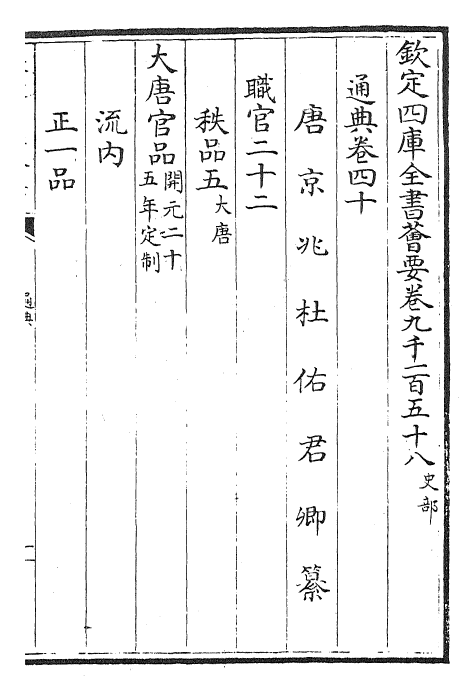 欽定四庫全書薈要卷九千一百五十八史部
通典卷四十
唐京兆杜佑君卿纂
職官二十二
秩品五大唐
大唐官品開元二十五年定制
流内
正一品
通典
一